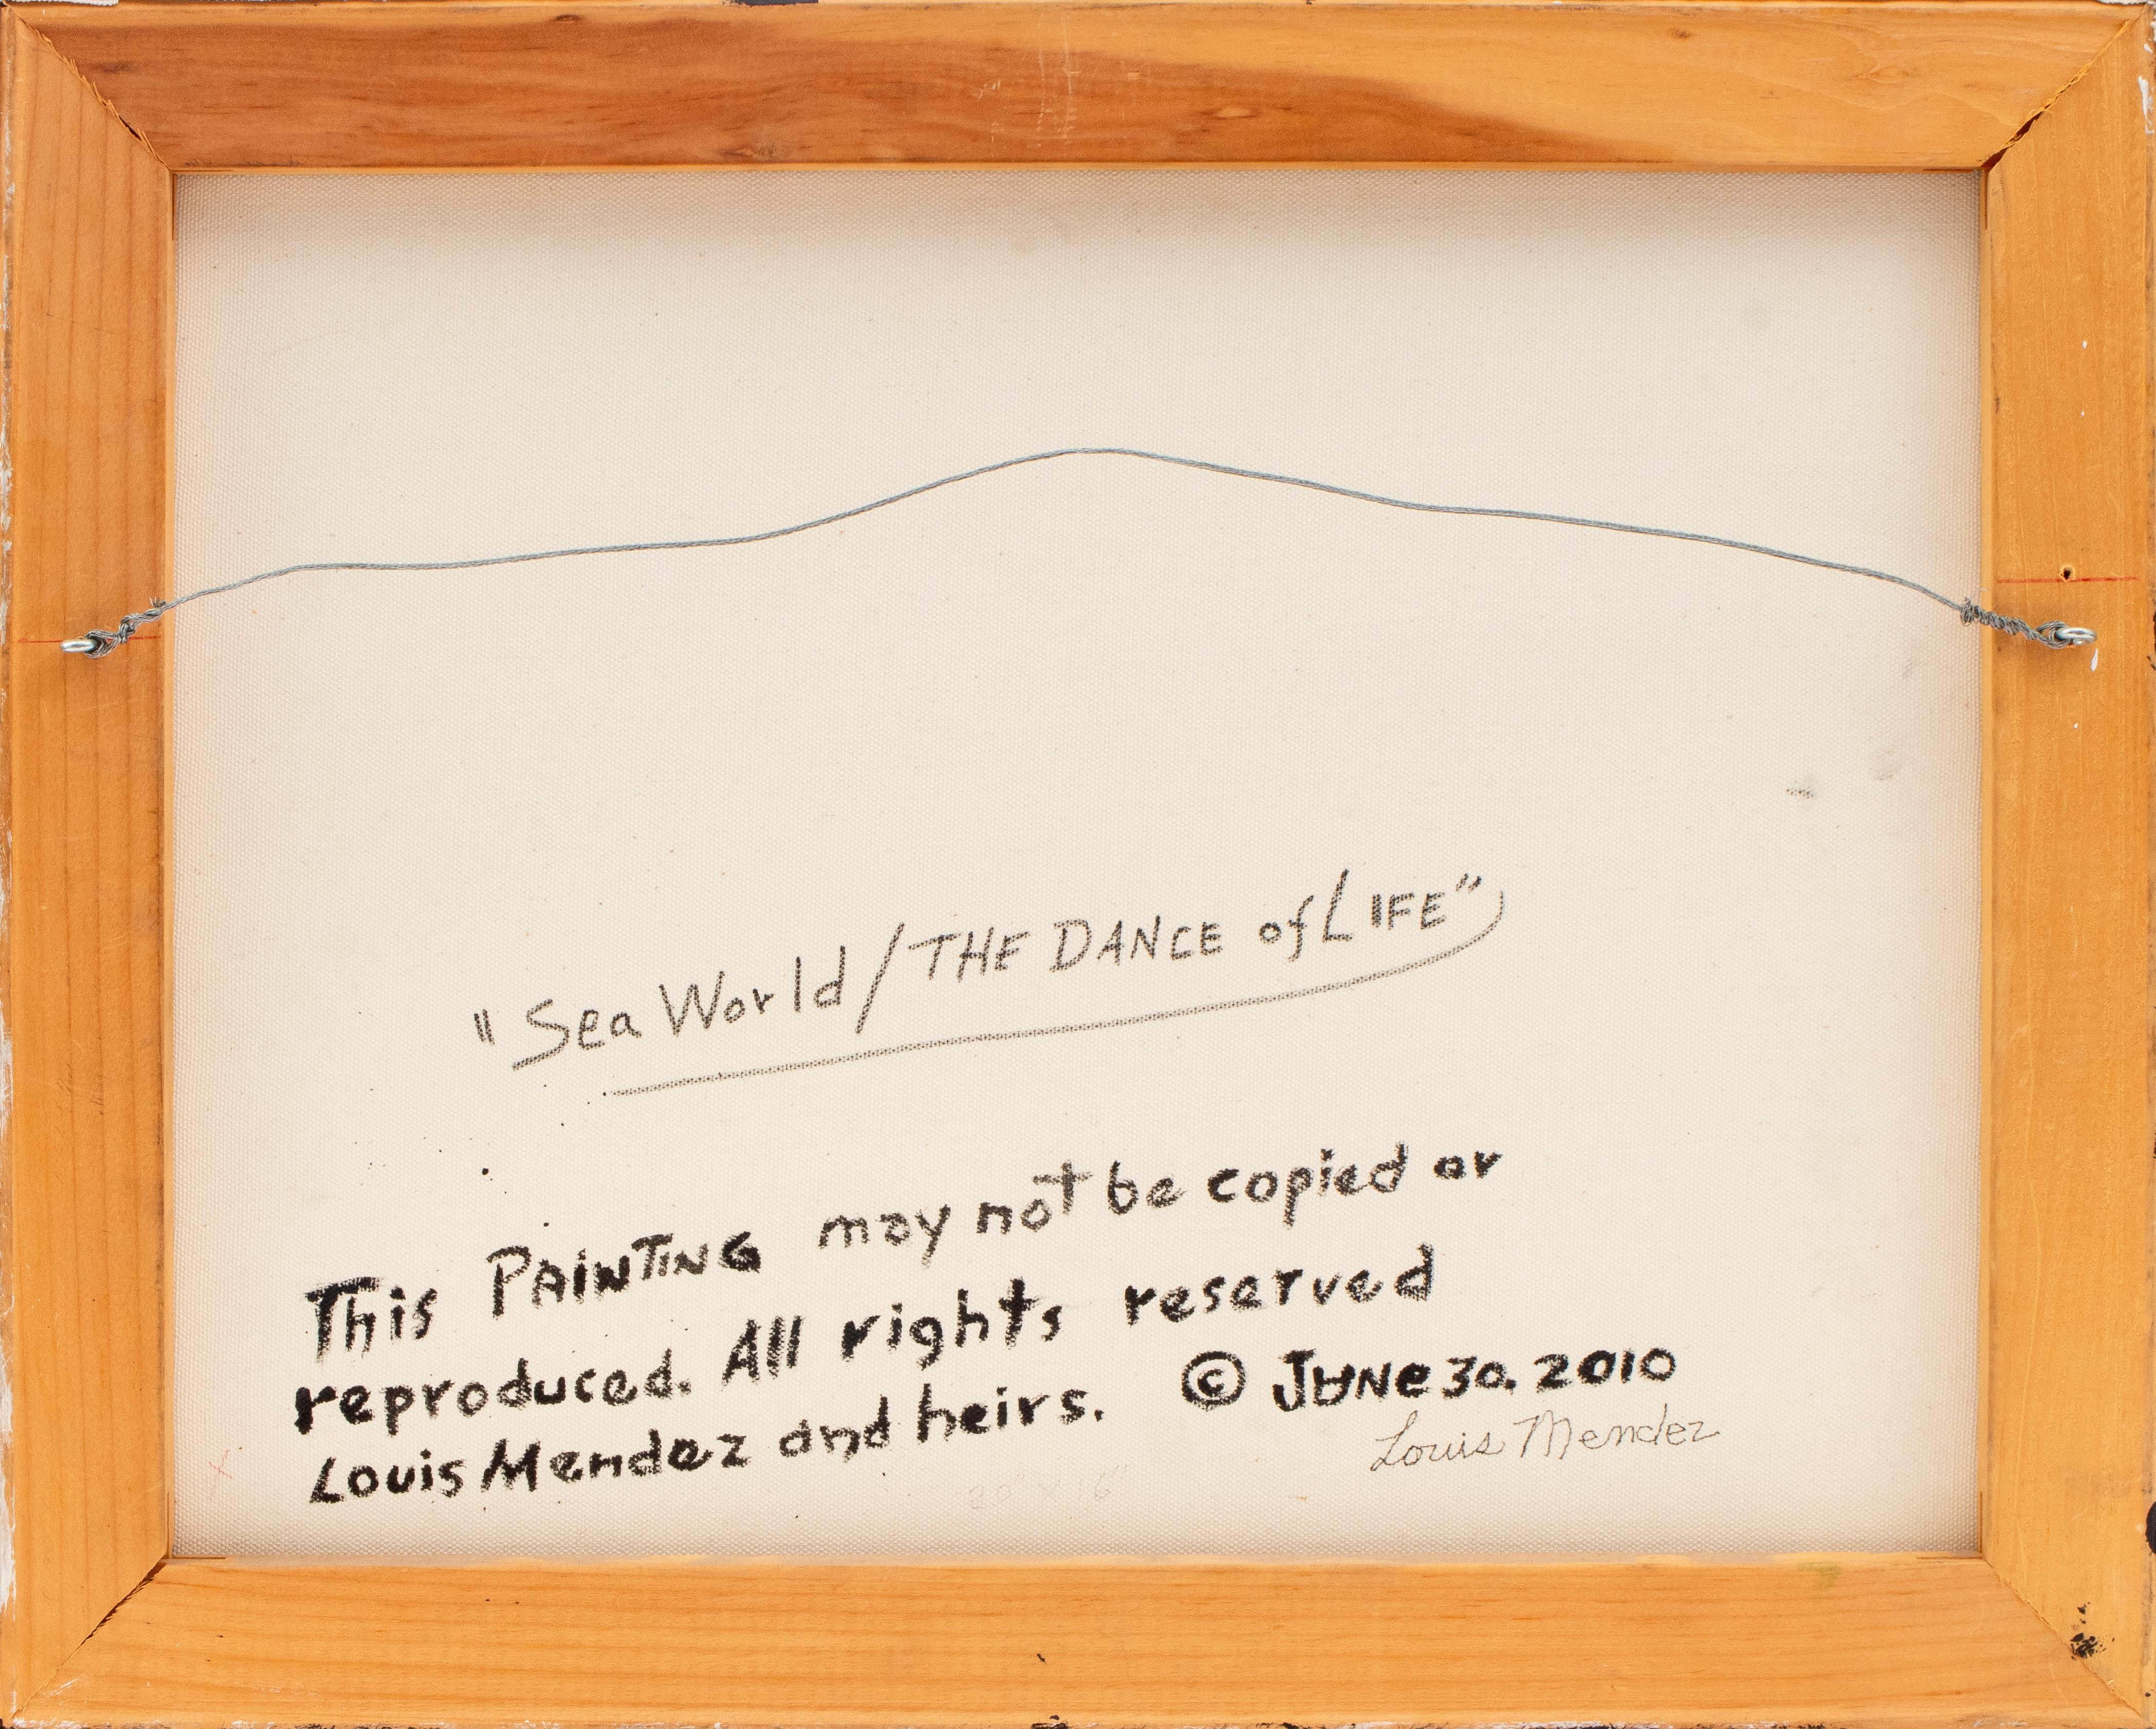 "Sea World/THE DANCE of LIFE"
This PAiNTiNG may not be copied or
reproduced. All rights reserved
Louis Mendez and heirs. © JUNe 30. 2010
Louis Mendez